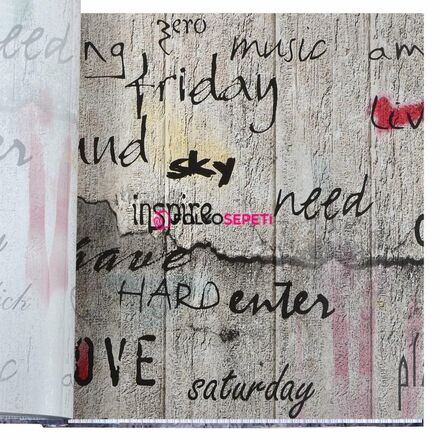 zero
ng music am
friday
liv
und
sky
inspire need
SEPETI
have
HARD enter
OVE
saturday pl